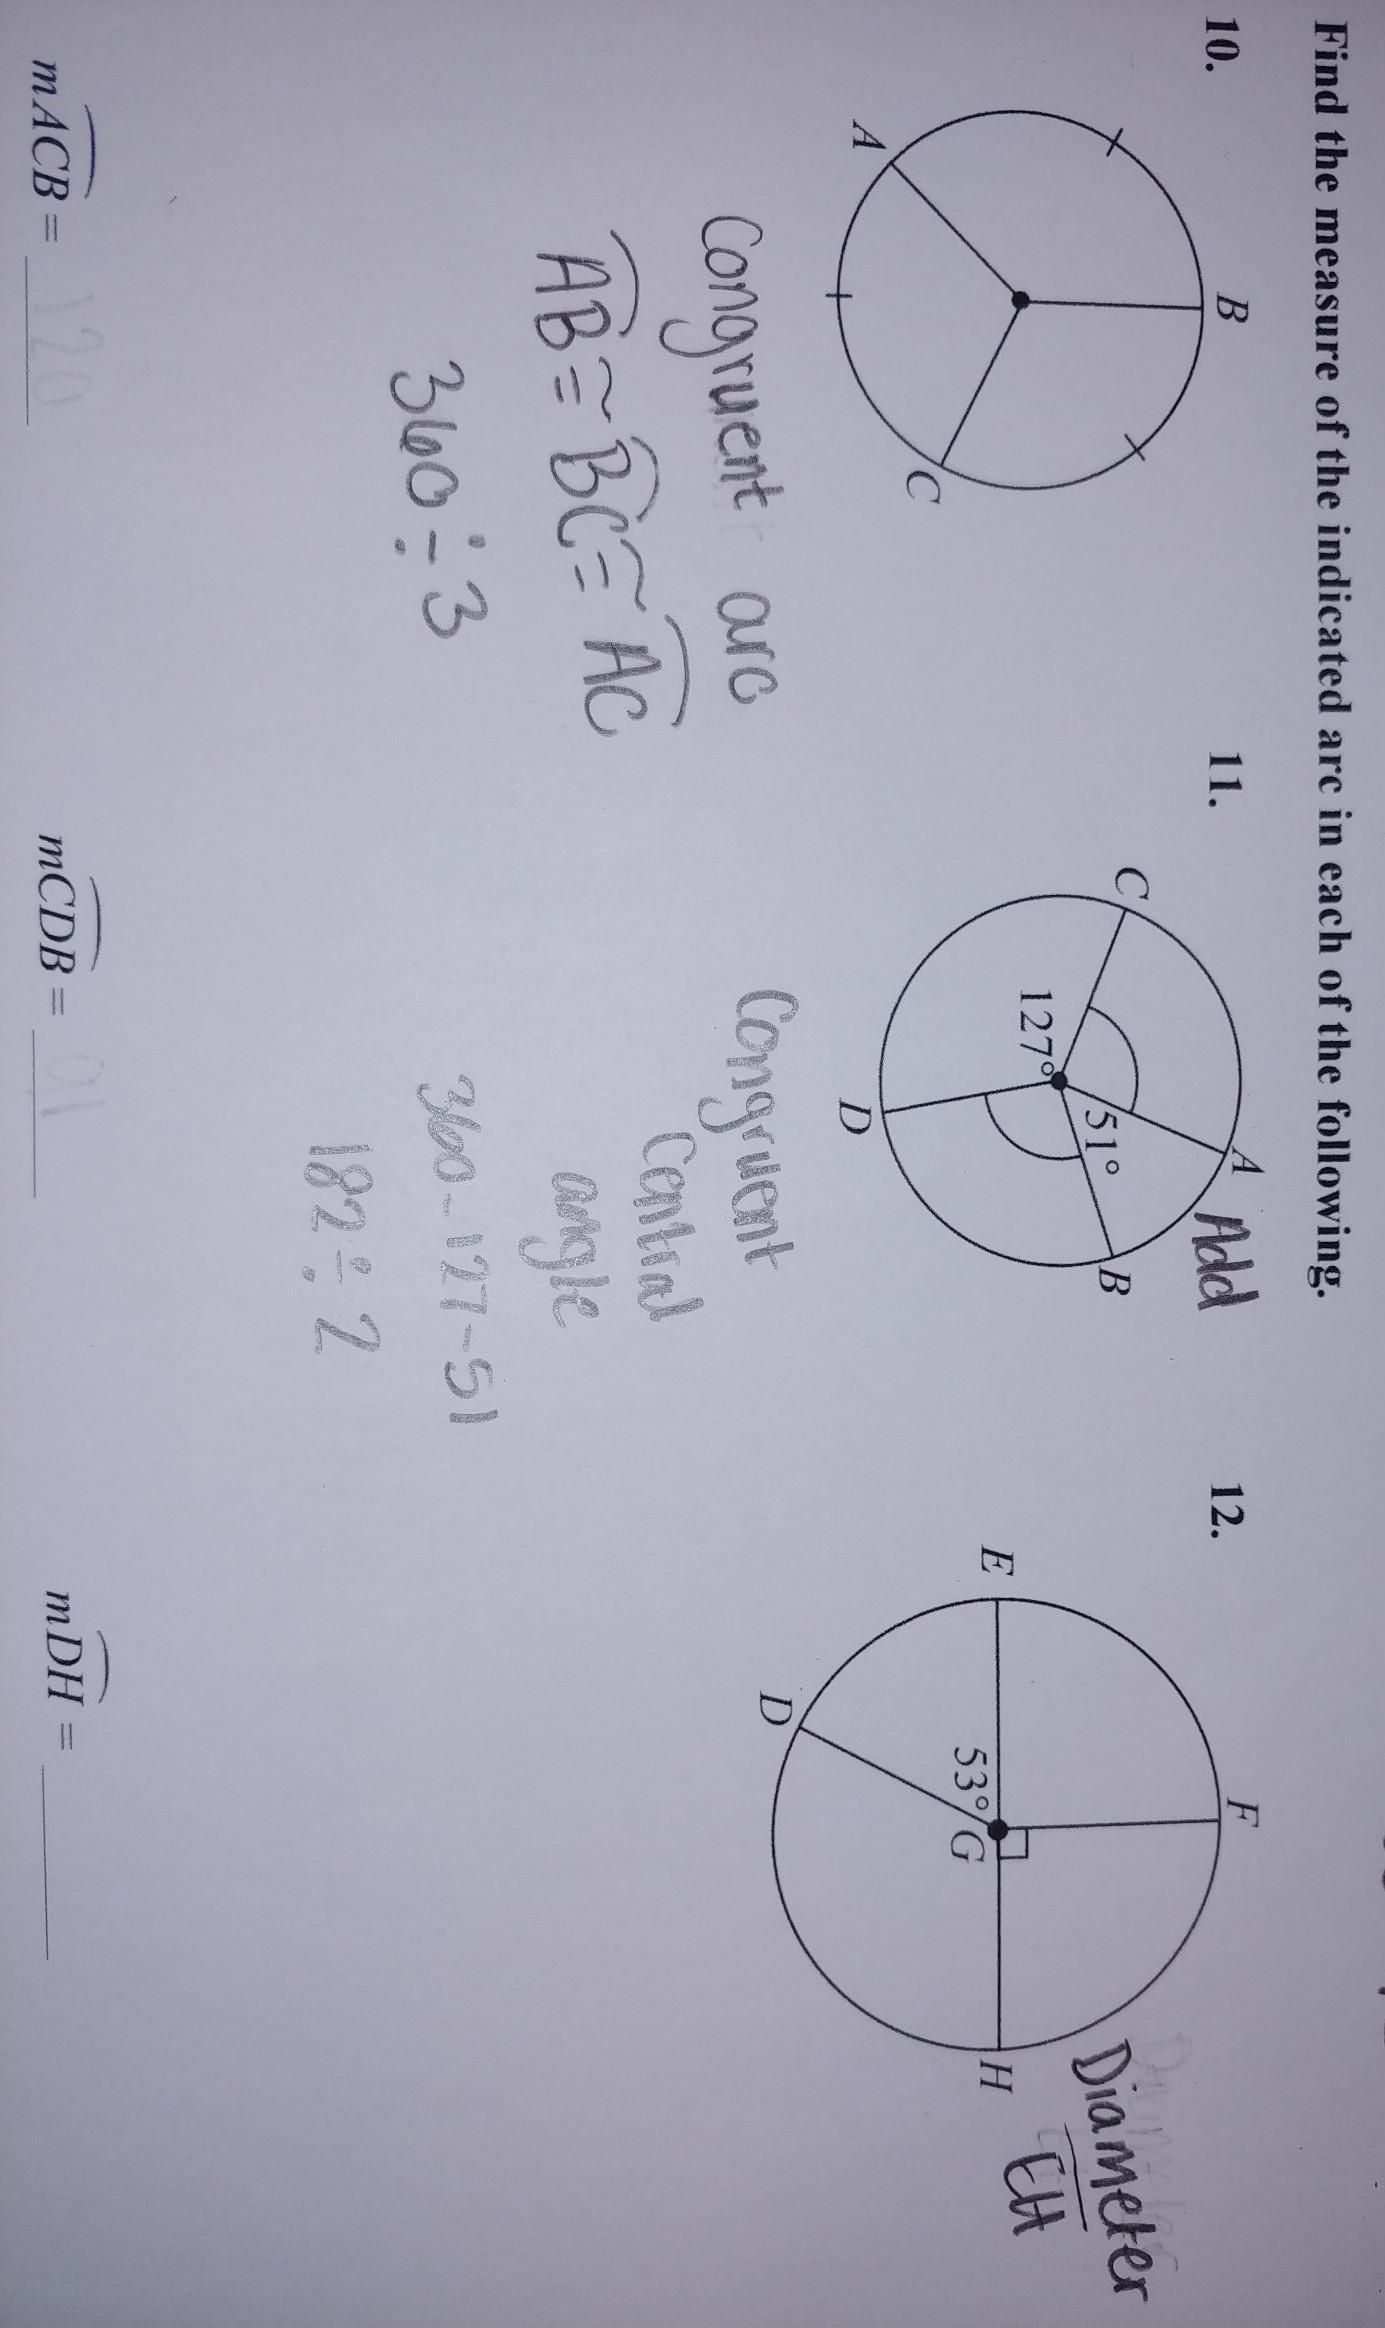 Find the measure of the indicated arc in each of the following.
10.
B
A
C
Congruent arc
AB ≅ BC ≅ AC
360 ÷ 3
mACB = 120
11.
C
A
Add
51°
B
127°
D
Congruent
central
angle
360-127-51
182 ÷ 2
mCDB = 91
12.
F
E
H
53°
G
D
Diameter
EH
mDH =